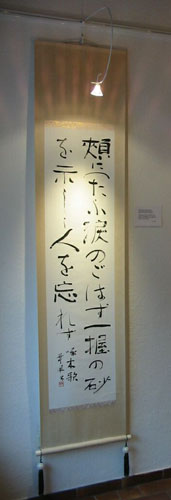 頬につたふ涙のごはず一握の砂
を示しし人を忘れず
啄木歌